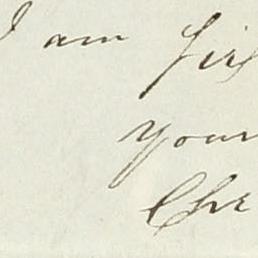 I am fir
your
Chr